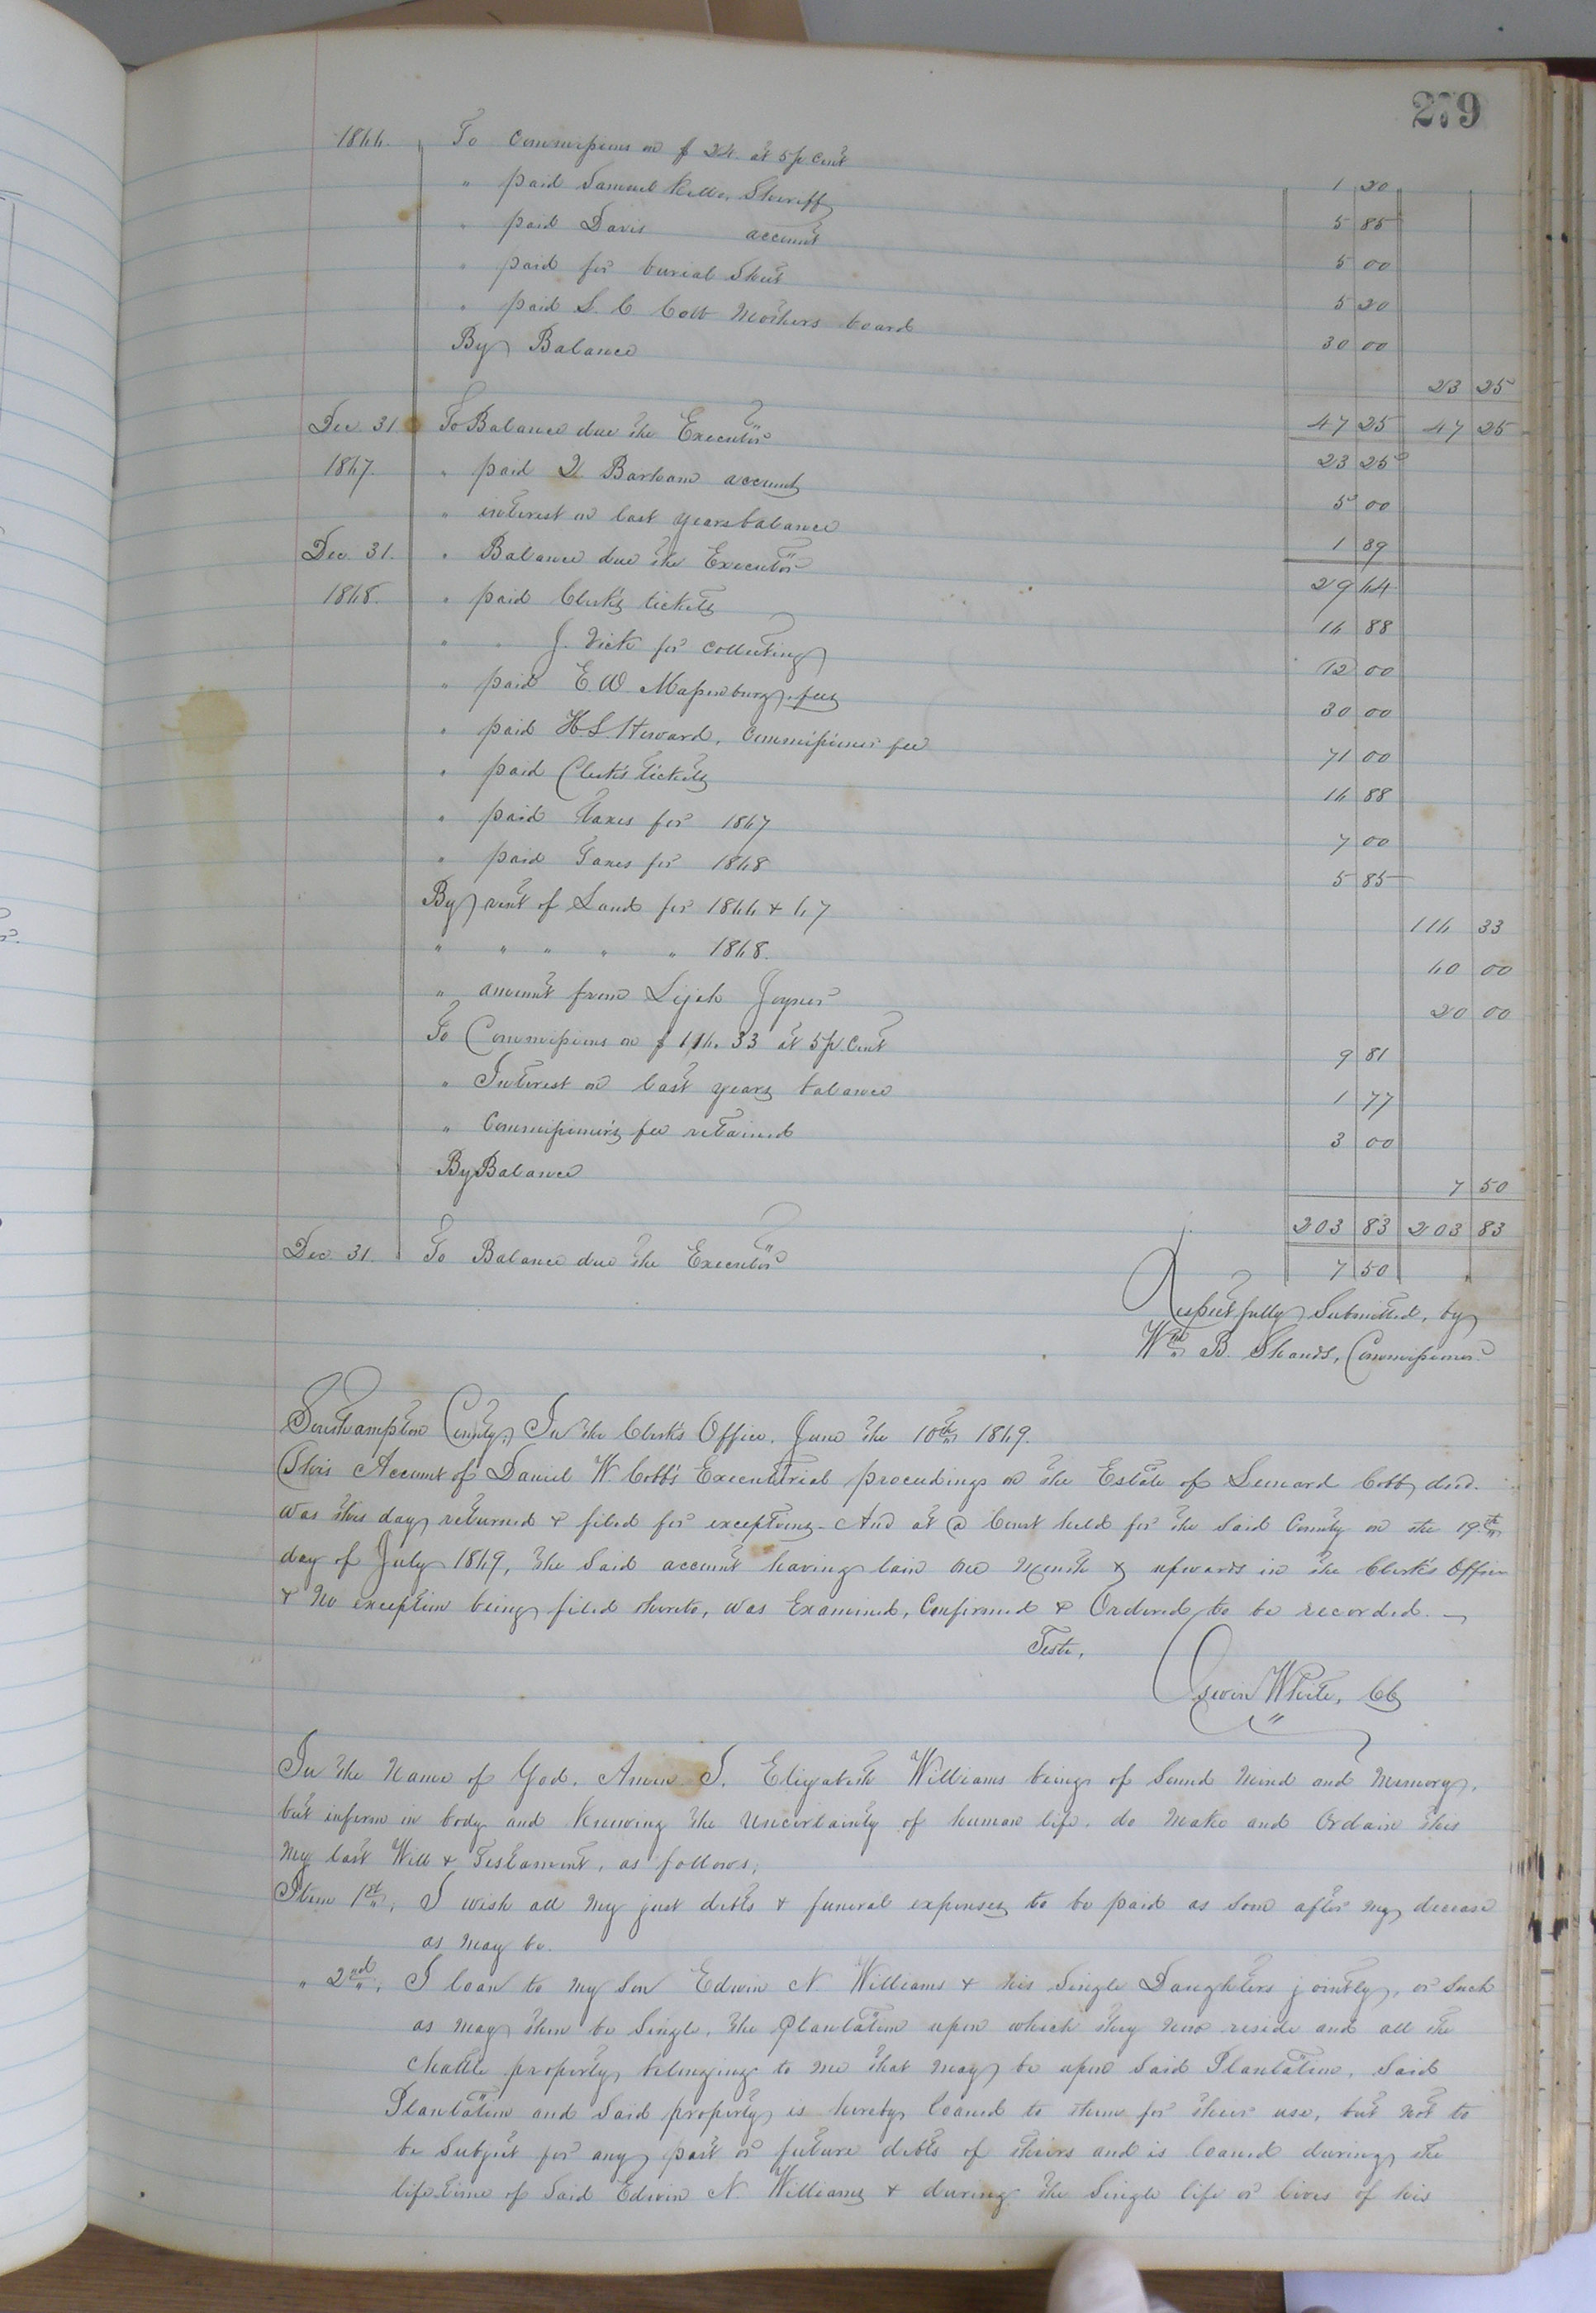 279
1866. To Commissions on $24. at 5 p cent 1 20
" paid Samuel Kello, Sheriff 5 85
" paid Davis account 5 00
" paid for burial Sheet 5 20
" paid S. C Cobb Mothers board 30 00
By Balance 23 25
47 25 47 25
Dec. 31 To Balance due the Executor 23 25
1867. " paid Barham account 5 00
" interest on last years balance 1 39
Dec. 31. " Balance due the Executor 29 64
1868. " paid Clerk's tickets 16 88
" " J. Vick for collecting 12 00
" paid E. W. Massenburg, fees 30 00
" paid H. S. Howard, Commissioners fee 71 00
" paid Clerk's tickets 16 88
" paid Taxes for 1867 7 00
" paid Taxes for 1868 5 85
By rent of Land for 1866 & 67 116 33
" " " " " 1868. 60 00
" amount from Joyner 20 00
To Commissions on $ 196. 33 at 5 p. Cent 9 81
" Interest on last years balance 1 77
" Commissioner's fee retained 3 00
By Balance 7 50
203 83 203 83
Dec. 31. To Balance due the Executor 7 50
Respectfully Submitted, by
Wm B. Shands, Commissioner
Southampton County, In the Clerk's Office. June the 10th 1869.
This Account of Daniel W. Cobb's Executorial proceedings on the Estate of Lenard Cobb, decd.
was this day returned & filed for exceptions - And at a Court held for the said County on the 19th
day of July 1869, the said account having lain one Month & upwards in the Clerk's Office
& No exception being filed thereto, was Examined, Confirmed & Ordered to be recorded. -
Teste,
White, CC
In the Name of God. Amen. I. Elizabeth Williams being of Sound Mind and Memory,
but infirm in body and Knowing the Uncertainty of human life. do Make and Ordain this
My last Will & Testament, as follows;
Item 1st; I wish all My just debts & funeral expenses to be paid as soon after My decease
as May be.
" 2nd; I loan to my Son Edwin N. Williams & his Single Daughters jointly, or Such
as may then be Single, the Plantation upon which they now reside and all the
Chattle property belonging to me that may be upon Said Plantation. Said
Plantation and Said property is hereby loaned to them for their use, but not to
be Subject for any past or future debts of theirs and is loaned during the
life-time of Said Edwin N. Williams & during the Single life or lives of his